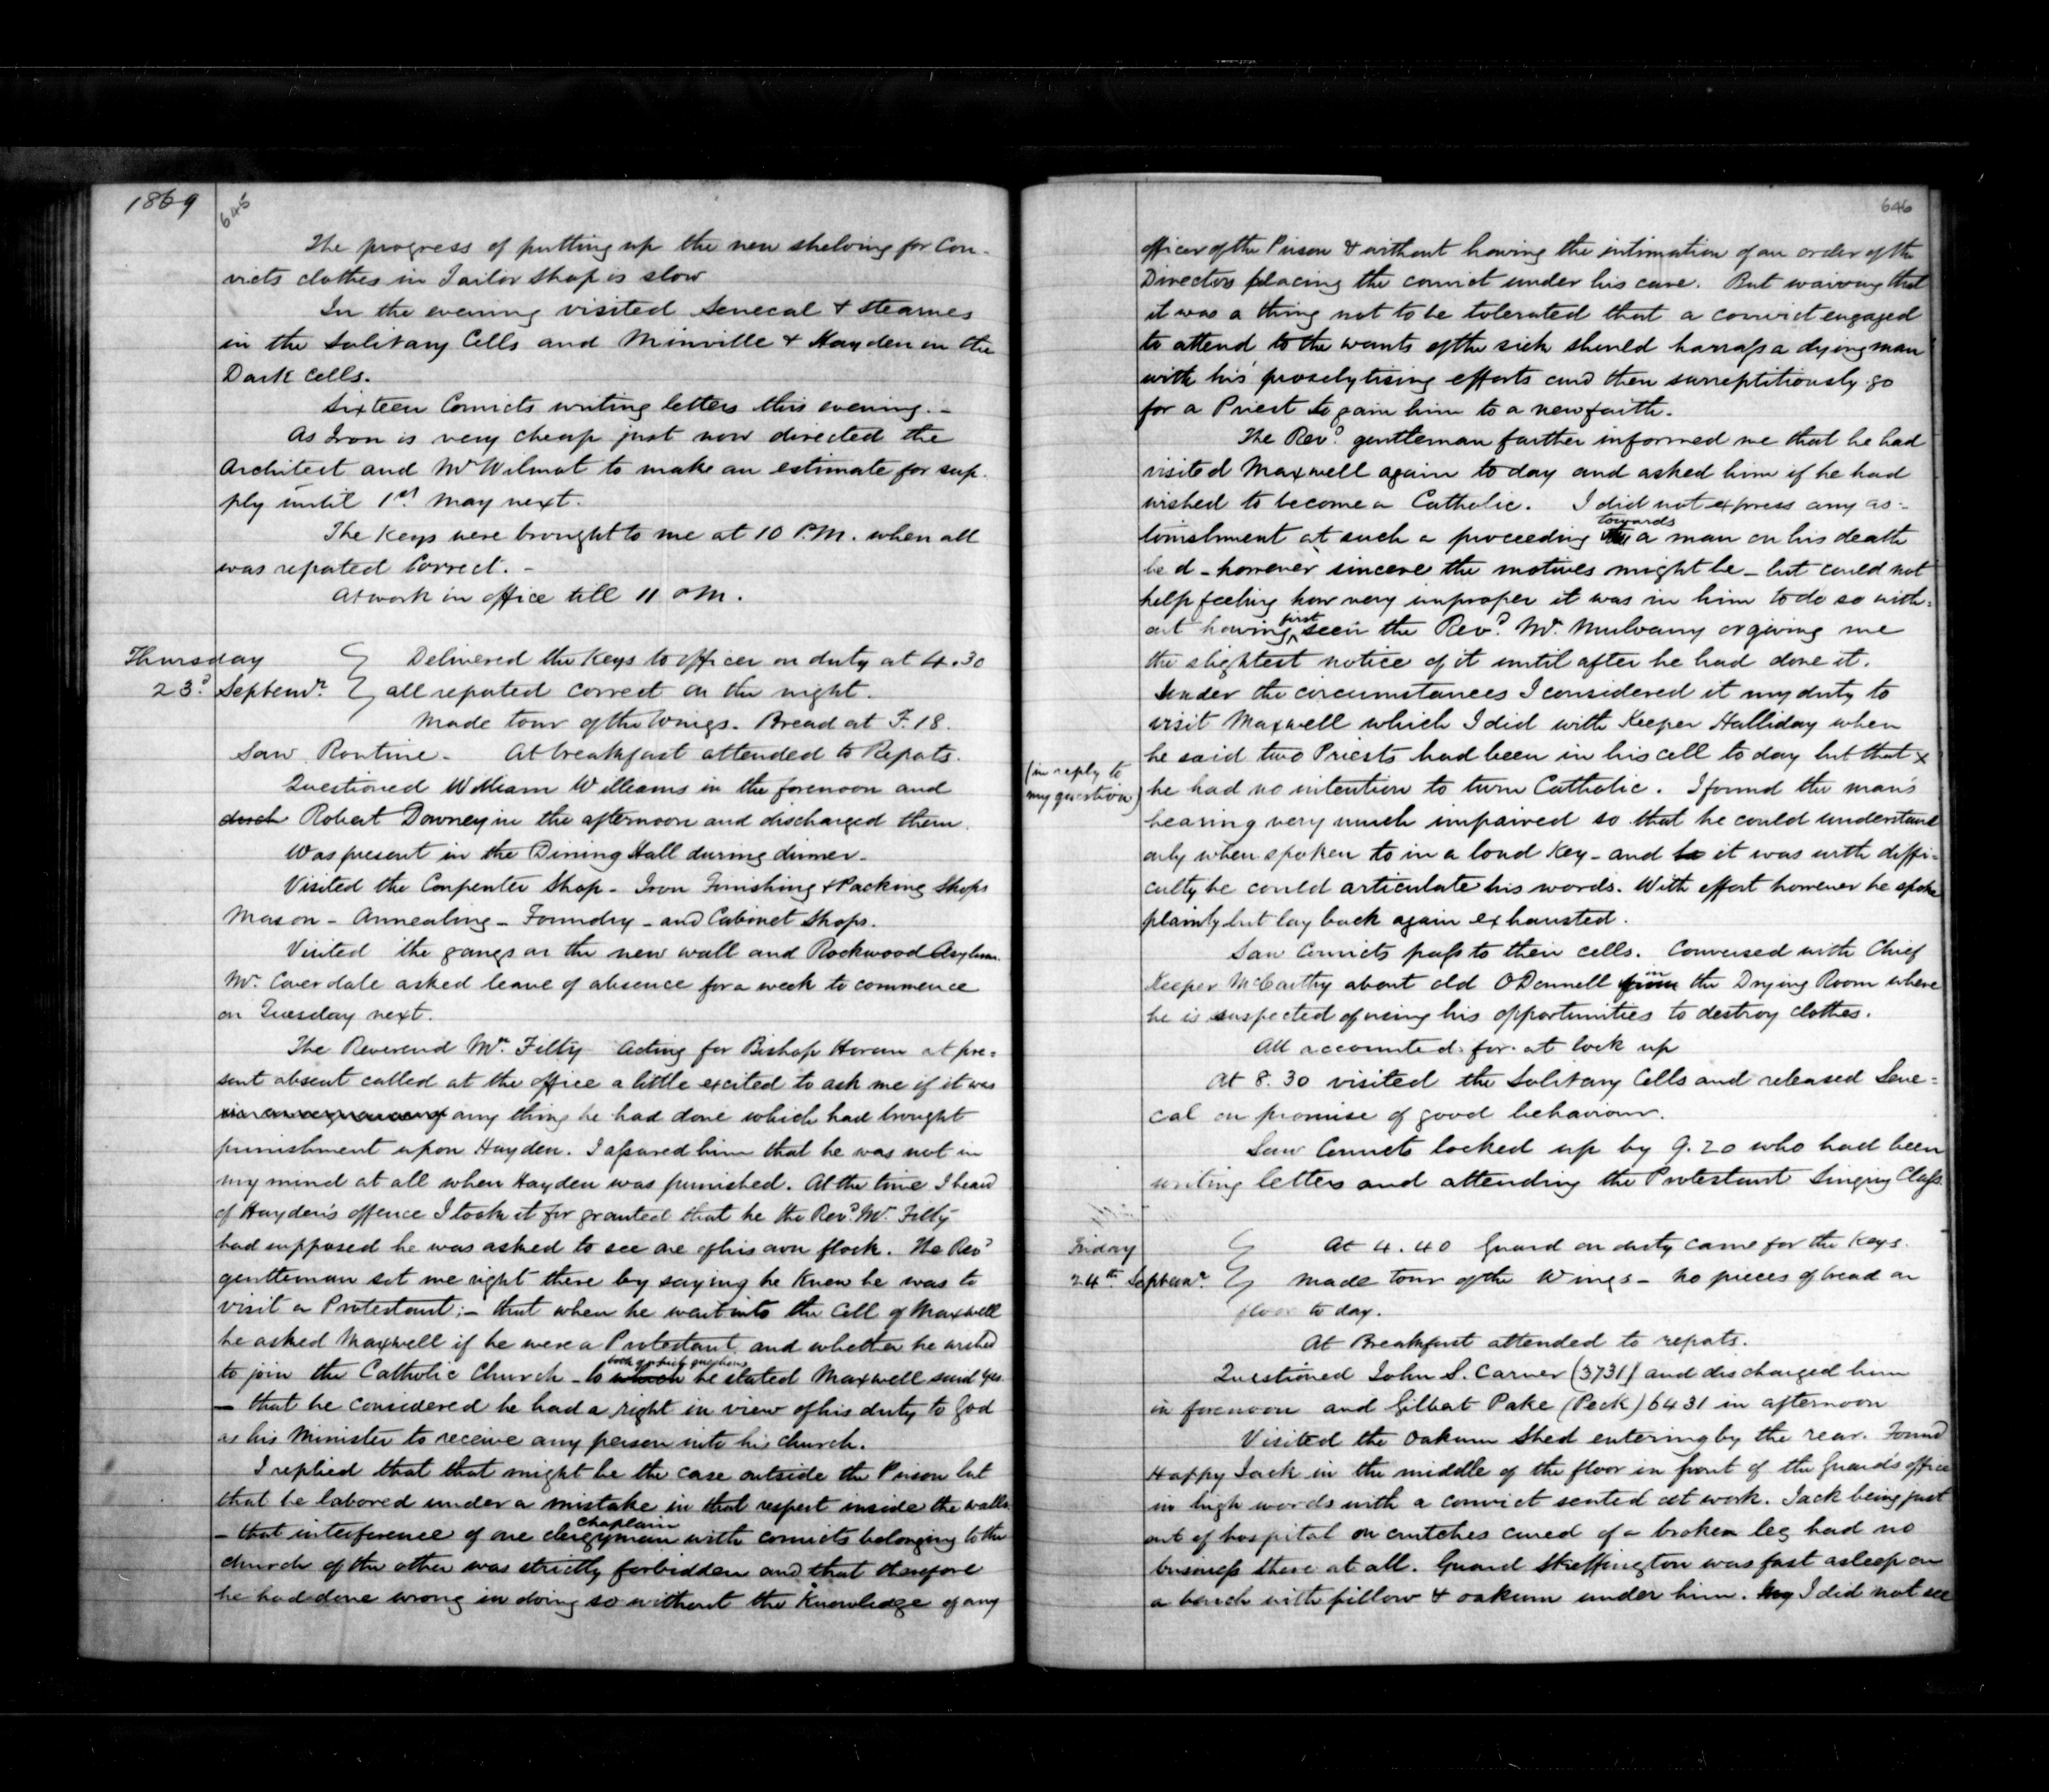 1869
645
The progress of putting up the new shelving for Con-
victs clothes in Tailor Shop is slow
In the evening visited Senecal & Stearnes
in the Solitary Cells and Minville & Hayden in the
Dark Cells.
Sixteen Convicts writing letters this evening. -
As Iron is very cheap just now directed the
Architect and Mr Wilmot to make an estimate for sup-
ply until 1st May next.
The Keys were brought to me at 10 P.M. when all
was reported Correct. -
At work in office till 11 PM.
Thursday
23d Septemr.
Delivered the Keys to officer on duty at 4.30
all reported correct on the night.
Made tour of the Wings. Bread at F. 18.
Saw Routine - At breakfast attended to Reports.
Questioned William Williams in the forenoon and
disch Robert Downey in the afternoon and discharged them.
Was present in the Dining Hall during dinner -
Visited the Carpenter Shop - Iron Finishing & Packing Shops
Mason - Annealing - Foundry - and Cabinet Shops.
Visited the gangs on the new wall and Rockwood Asylum.
Mr. Coverdale asked leave of absence for a week to commence
on Tuesday next.
The Reverend Mr. Filty Acting for Bishop Horan at pre=
sent absent called at the office a little excited to ask me if it was
any thing he had done which had brought
punishment upon Hayden. I assured him that he was not in
my mind at all when Hayden was punished. At the time I heard
of Hayden's offence I took it for granted that he the Revd. Mr. Filty
had supposed he was asked to see one of his own flock. The Revd
gentleman set me right there by saying he knew he was to
visit a Protestant; - that when he went into the Cell of Maxwell
he asked Maxwell if he were a Protestant and whether he wished
to join the Catholic Church - to which both of which questions he stated Maxwell said yes
- that he considered he had a right in view of his duty to God
as his Minister to receive any person into his church.
I replied that that might be the case outside the Prison but
that he labored under a mistake in that respect inside the walls
- that interference of one clergyman chaplain with convicts belonging to the
church of the other was strictly forbidden and that therefore
he had done wrong in doing so without the Knowledge of any
646
officer of the Prison & without having the intimation of an order of the
Directors placing the convict under his care. But waiving that
it was a thing not to be tolerated that a convict engaged
to attend to the wants of the sick should harrass a dying man
with his proselytising efforts and then surreptitiously go
for a Priest to gain him to a new faith.
The Revd. gentleman further informed me that he had
visited Maxwell again to day and asked him if he had
wished to become a Catholic. I did not express any as-
tonishment at such a proceeding towards a man on his death
bed - however sincere the motives might be - but could not
help feeling how very improper it was in him to do so with=
out having first seen the Revd. Mr. Mulvany or giving me
the slightest notice of it until after he had done it.
Under the circumstances I considered it my duty to
visit Maxwell which I did with Keeper Halliday when
he said two Priests had been in his cell to day but that x
(in reply to
my question)
he had no intention to turn Catholic. I found the man's
hearing very much impaired so that he could understand
only when spoken to in a loud Key - and it was with diffi-
culty he could articulate his words. With effort however he spoke
plainly but lay back again exhausted.
Saw Convicts pass to their cells. Conversed with Chief
Keeper McCarthy about old O'Donnell from in the Drying Room where
he is suspected of using his opportunities to destroy clothes.
All accounted for at lock up
At 8.30 visited the Solitary Cells and released Sene=
cal on promise of good behaviour.
Saw Convicts locked up by 9.20 who had been
writing letters and attending the Protestant Singing Class.
Friday
24th Septemr.
At 4.40 Guard on duty came for the Keys.
Made tour of the Wings - No pieces of bread on
floor to day.
At Breakfast attended to reports.
Questioned John S. Carner (3731) and discharged him
in forenoon and Gilbert Pake (Peck) 6431 in afternoon
Visited the Oakum Shed entering by the rear. Found
Happy Jack in the middle of the floor in front of the Guard's office
in high words with a convict seated at work. Jack being just
out of hospital on crutches cured of a broken leg had no
business there at all. Guard Skeffington was fast asleep on
a bench with pillow & oakum under him. I did not see